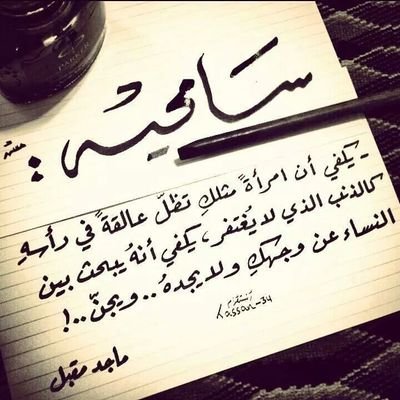 سامحيه :
- يكفي أن امرأةً مثلكِ تظلّ عالقةً في رأسهِ
كالذنب الذي لا يُغتفر، يكفي أنهُ يبحث بين
النساء عن وجهكِ ولا يجدهُ .. ويجنّ ..!
انستقرام
Kassar_34
ماجد مقبل